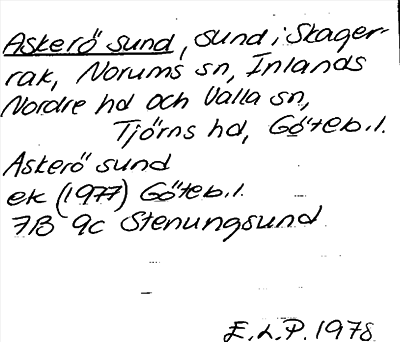 Askerö sund, sund i Skager-
rak, Norums sn, Inlands
Nordre hd och Valla sn,
Tjörns hd, Göteb.l.
Askerö sund
ek (1977) Göteb.l.
7B 9c Stenungsund
E.L.P. 1978